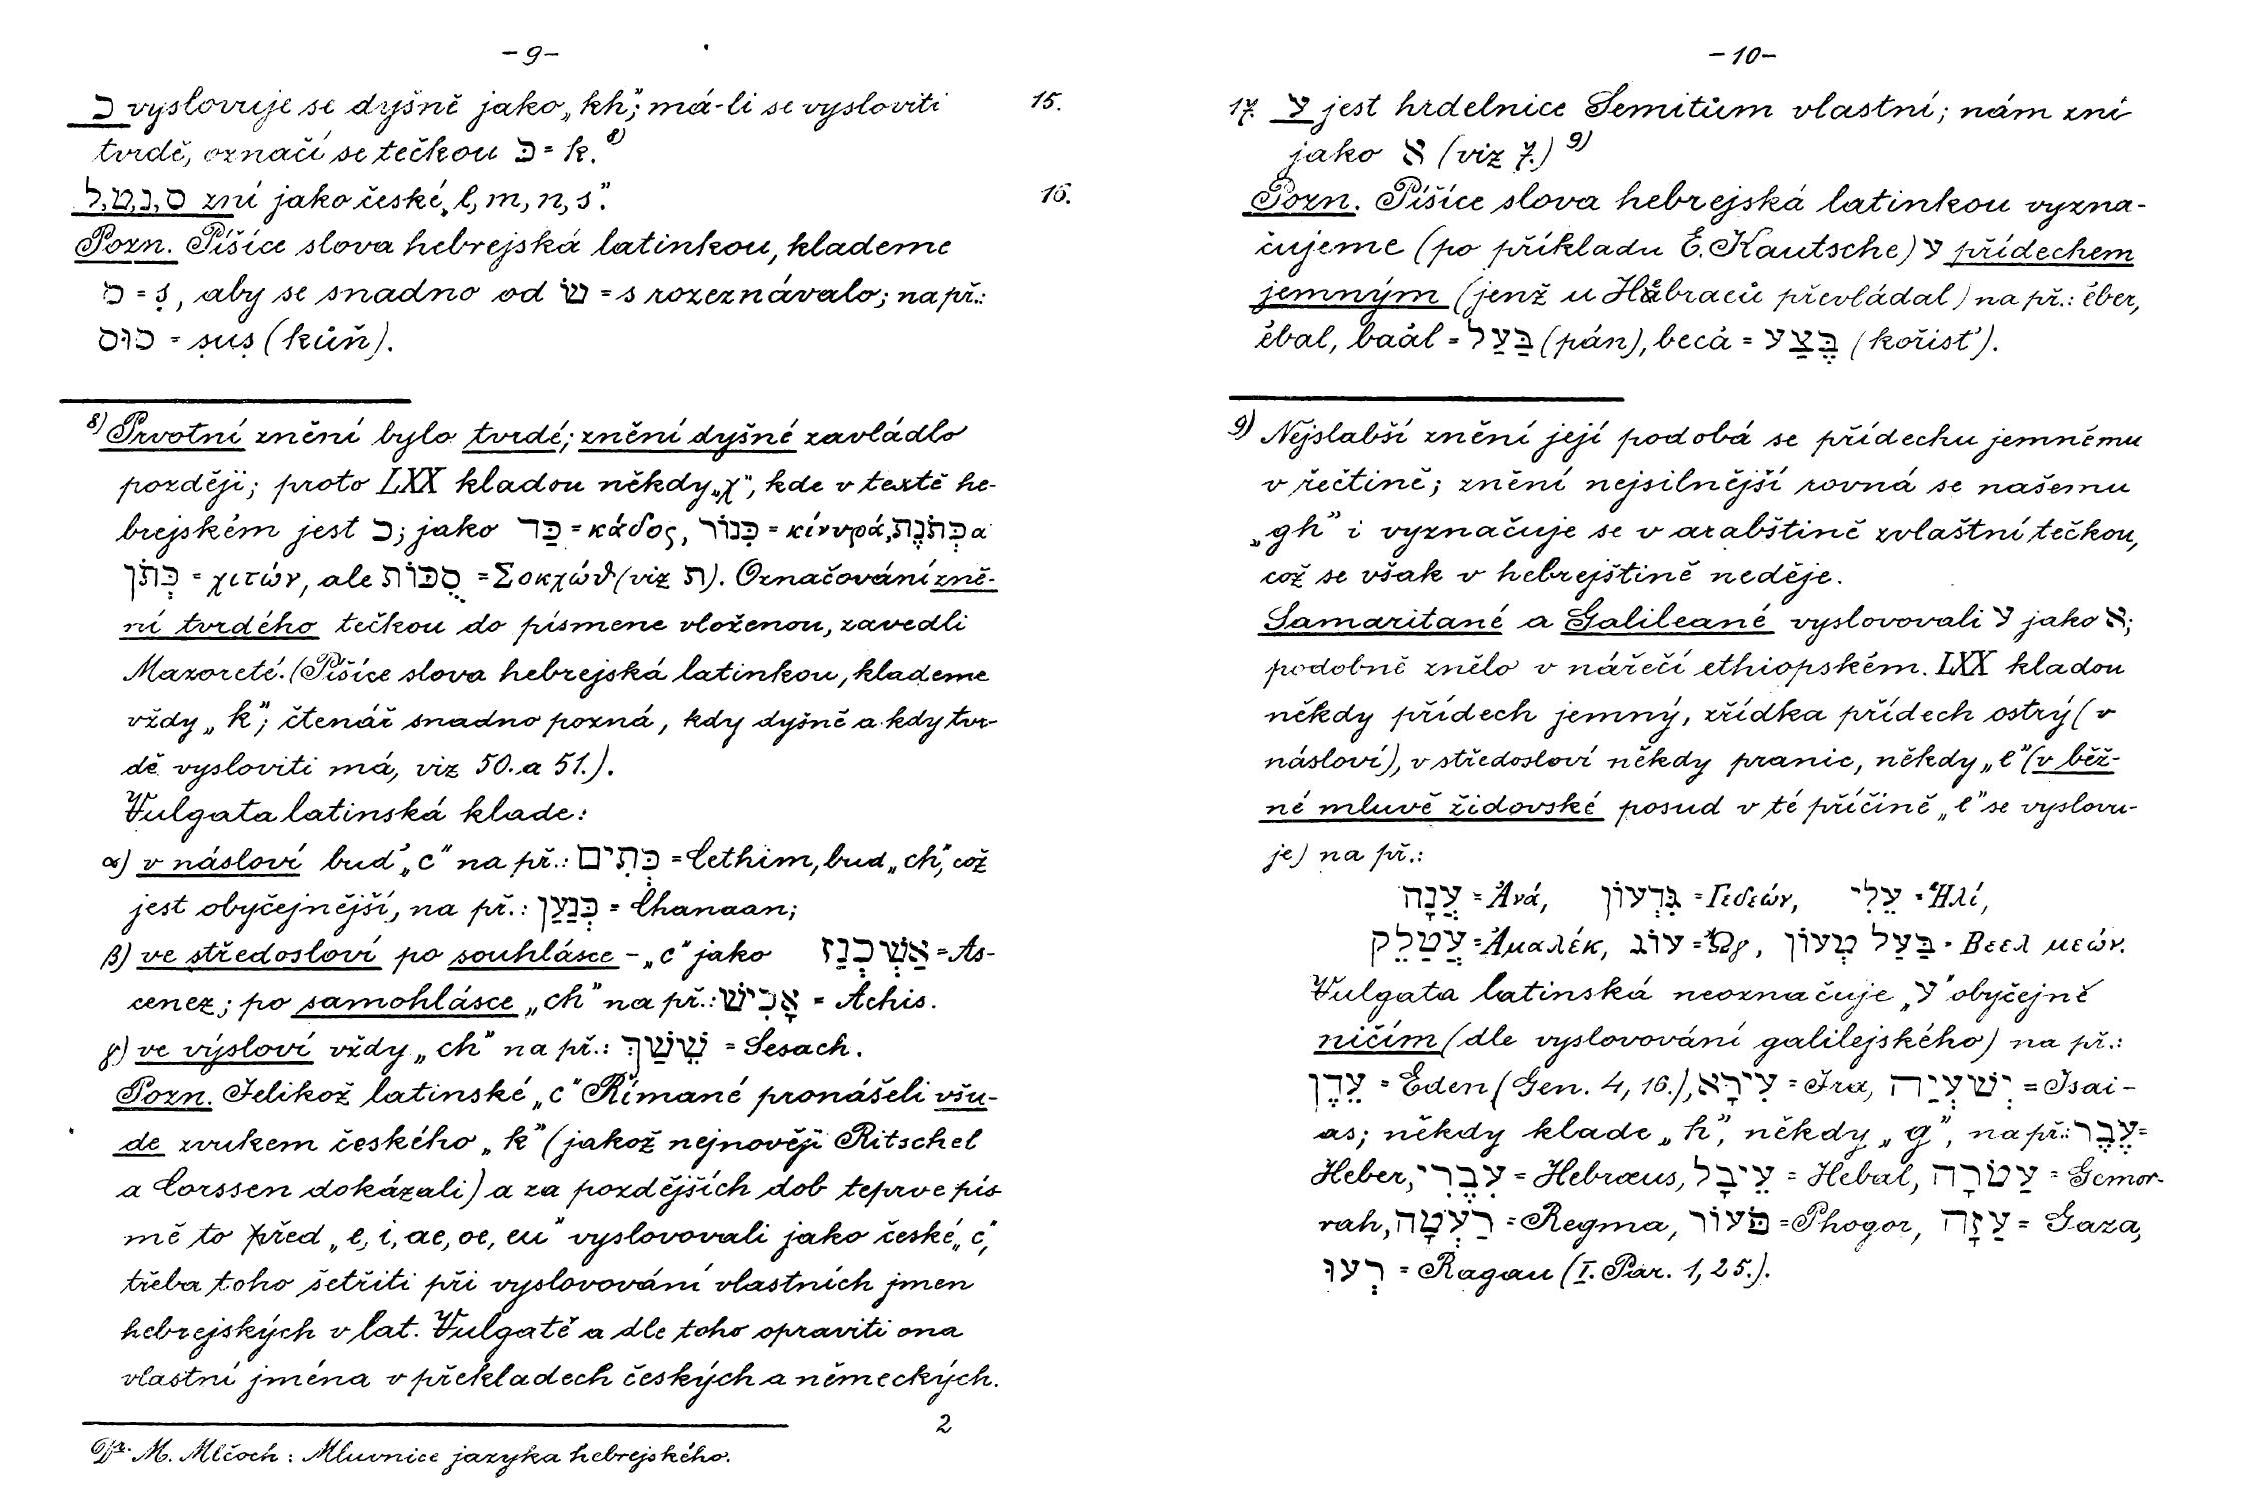 -9-
כ vyslovuje se dyšně jako „kh"; má-li se vysloviti 15.
tvrdě, označí se tečkou כּ = k.⁸⁾
ל, מ, נ, ס zní jako české „l, m, n, s". 16.
Pozn. Píšíce slova hebrejská latinkou, klademe
ס = ṣ, aby se snadno od שׂ = s rozeznávalo; na př.:
סוּס = ṣuṣ (kůň).
8) Prvotní znění bylo tvrdé; znění dyšné zavládlo
později; proto LXX kladou někdy „χ", kde v textě he-
brejském jest כ; jako כַּד = κάδος, כִּנּוֹר = κίνυρά, כְּתֹנֶת a
כְּתֹן = χιτών, ale סֻכּוֹת = Σοκχώθ (viz ת). Označování zně-
ní tvrdého tečkou do písmene vloženou, zavedli
Mazoreté. (Píšíce slova hebrejská latinkou, klademe
vždy „k"; čtenář snadno pozná, kdy dyšně a kdy tvr-
dě vysloviti má, viz 50. a 51.).
Vulgata latinská klade:
α) v násloví buď „c" na př.: כִּתִּים = Cethim, bud „ch", což
jest obyčejnější, na př.: כְּנַעַן = Chanaan;
β) ve středosloví po souhlásce - „c" jako אַשְׁכְּנַז = As-
cenez; po samohlásce „ch" na př.: אָכִישׁ = Achis.
γ) ve výsloví vždy „ch" na př.: שֵׁשַׁךְ = Sesach.
Pozn. Jelikož latinské „c" Římané pronášeli všu-
de zvukem českého „k" (jakož nejnověji Ritschel
a Corssen dokázali) a za pozdějších dob teprve pís
mě to před „e, i, ae, oe, eu" vyslovovali jako české „c",
třeba toho šetřiti při vyslovování vlastních jmen
hebrejských v lat. Vulgatě a dle toho opraviti ona
vlastní jména v překladech českých a německých.
2
Dr. M. Mlčoch: Mluvnice jazyka hebrejského.
-10-
17. ע jest hrdelnice Semitům vlastní; nám zní
jako א (viz 7.) ⁹⁾
Pozn. Píšíce slova hebrejská latinkou vyzna-
čujeme (po příkladu E. Kautsche) ע přídechem
jemným (jenž u Hebraeů převládal) na př.: ἐber,
ἐbal, baἀl = בַּעַל (pán), becἀ = בֶּצַע (kořisť).
9) Nejslabší znění její podobá se přídechu jemnému
v řečtině; znění nejsilnější rovná se našemu
„gh" i vyznačuje se v arabštině zvlaštní tečkou,
což se však v hebrejštině neděje.
Samaritané a Galileané vyslovovali ע jako א;
podobně znělo v nářečí ethiopském. LXX kladou
někdy přídech jemný, zřídka přídech ostrý (v
násloví), v středosloví někdy pranic, někdy „e" (v běž-
né mluvě židovské posud v té příčině „e" se vyslovu-
je) na př.:
עֲנָה = Ἀνά, גִּדְעוֹן = Γεδεών, עֵלִי = Ἡλί,
עֲמָלֵק = Ἀμαλέκ, עוֹג = Ὤγ, בַּעַל מְעוֹן = Βεελ μεών.
Vulgata latinská neoznačuje „ע" obyčejně
ničím (dle vyslovování galilejského) na př.:
עֵדֶן = Eden (Gen. 4, 16.), עִירָא = Ira, יְשַׁעְיָה = Isai-
as; někdy klade „h", někdy „g", na př.: עֵבֶר =
Heber, עִבְרִי = Hebræus, עֵיבָל = Hebal, עֲמֹרָה = Gomor-
rah, רַעְמָה = Regma, פְּעוֹר = Phogor, עַזָּה = Gaza,
רְעוּ = Ragau (I. Par. 1, 25.).